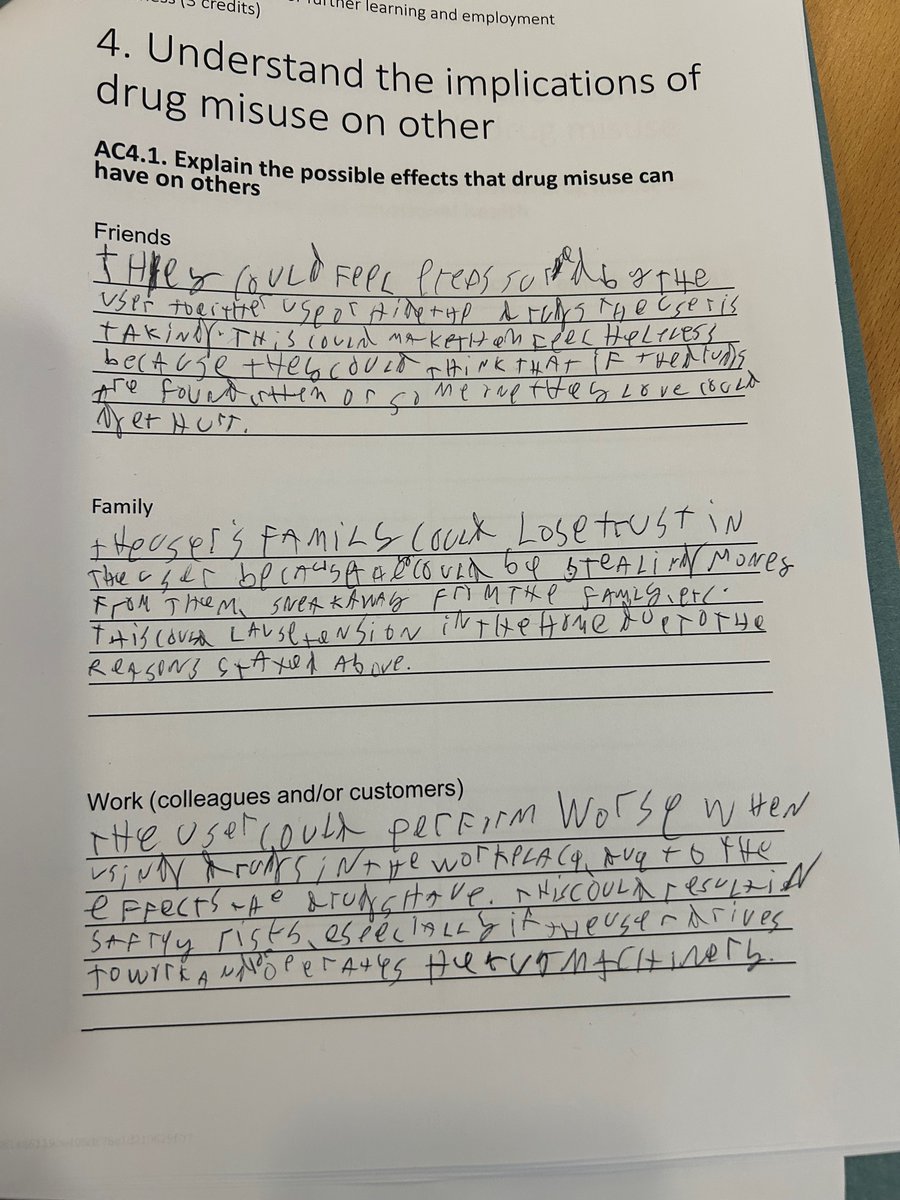 (3 credits)
further learning and employment
4. Understand the implications of
drug misuse on other
AC4.1. Explain the possible effects that drug misuse can
have on others
Friends
THEy COULD FEEL Pressured by THE
user to either use or hide the drugs THE user is
TAKING. THis could make them Feel HelPless
because they could THINK THAT iF the drugs
Are Found, them or someone they Love could
get Hurt.
Family
the user's FAMILY could Lose trust in
THE user because could be STEALING Money
From THEM, sneak away From THE Family, etc.
THis could cause tension in the Home due to THE
Reasons stated Above.
Work (colleagues and/or customers)
THE user could perform Worse WHEN
using drugs in the workplace, due to THE
effects the drugs HAve. THis could result in
safety risks, especially if the user drives
to work and operates Heavy Machinery.